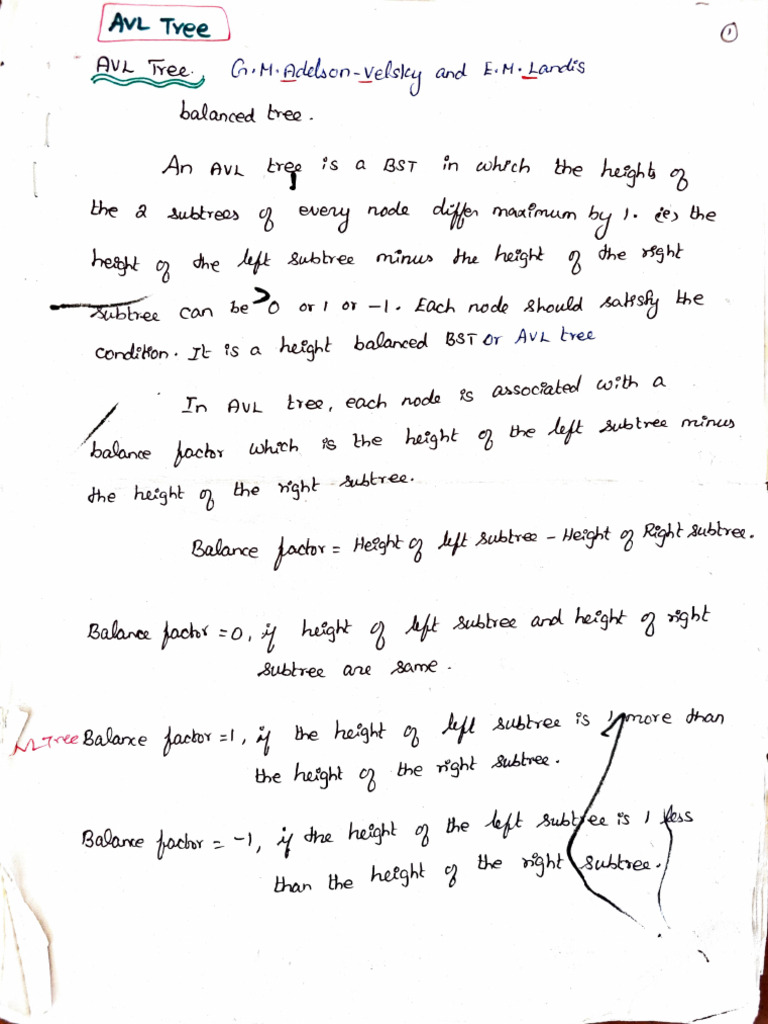 AVL Tree
1
AVL Tree. G.M. Adelson-Velsky and E.M. Landis
balanced tree.
An AVL tree is a BST in which the heights of
the 2 subtrees of every node differ maximum by 1. (ie) the
height of the left subtree minus the height of the right
subtree can be 0 or 1 or -1. Each node should satisfy the
condition. It is a height balanced BST or AVL tree
In AVL tree, each node is associated with a
balance factor which is the height of the left subtree minus
the height of the right subtree.
Balance factor = Height of left subtree - Height of Right subtree.
Balance factor = 0, if height of left subtree and height of right
subtree are same.
Tree Balance factor = 1, if the height of left subtree is 1 more than
the height of the right subtree.
Balance factor = -1, if the height of the left subtree is 1 less
than the height of the right subtree.